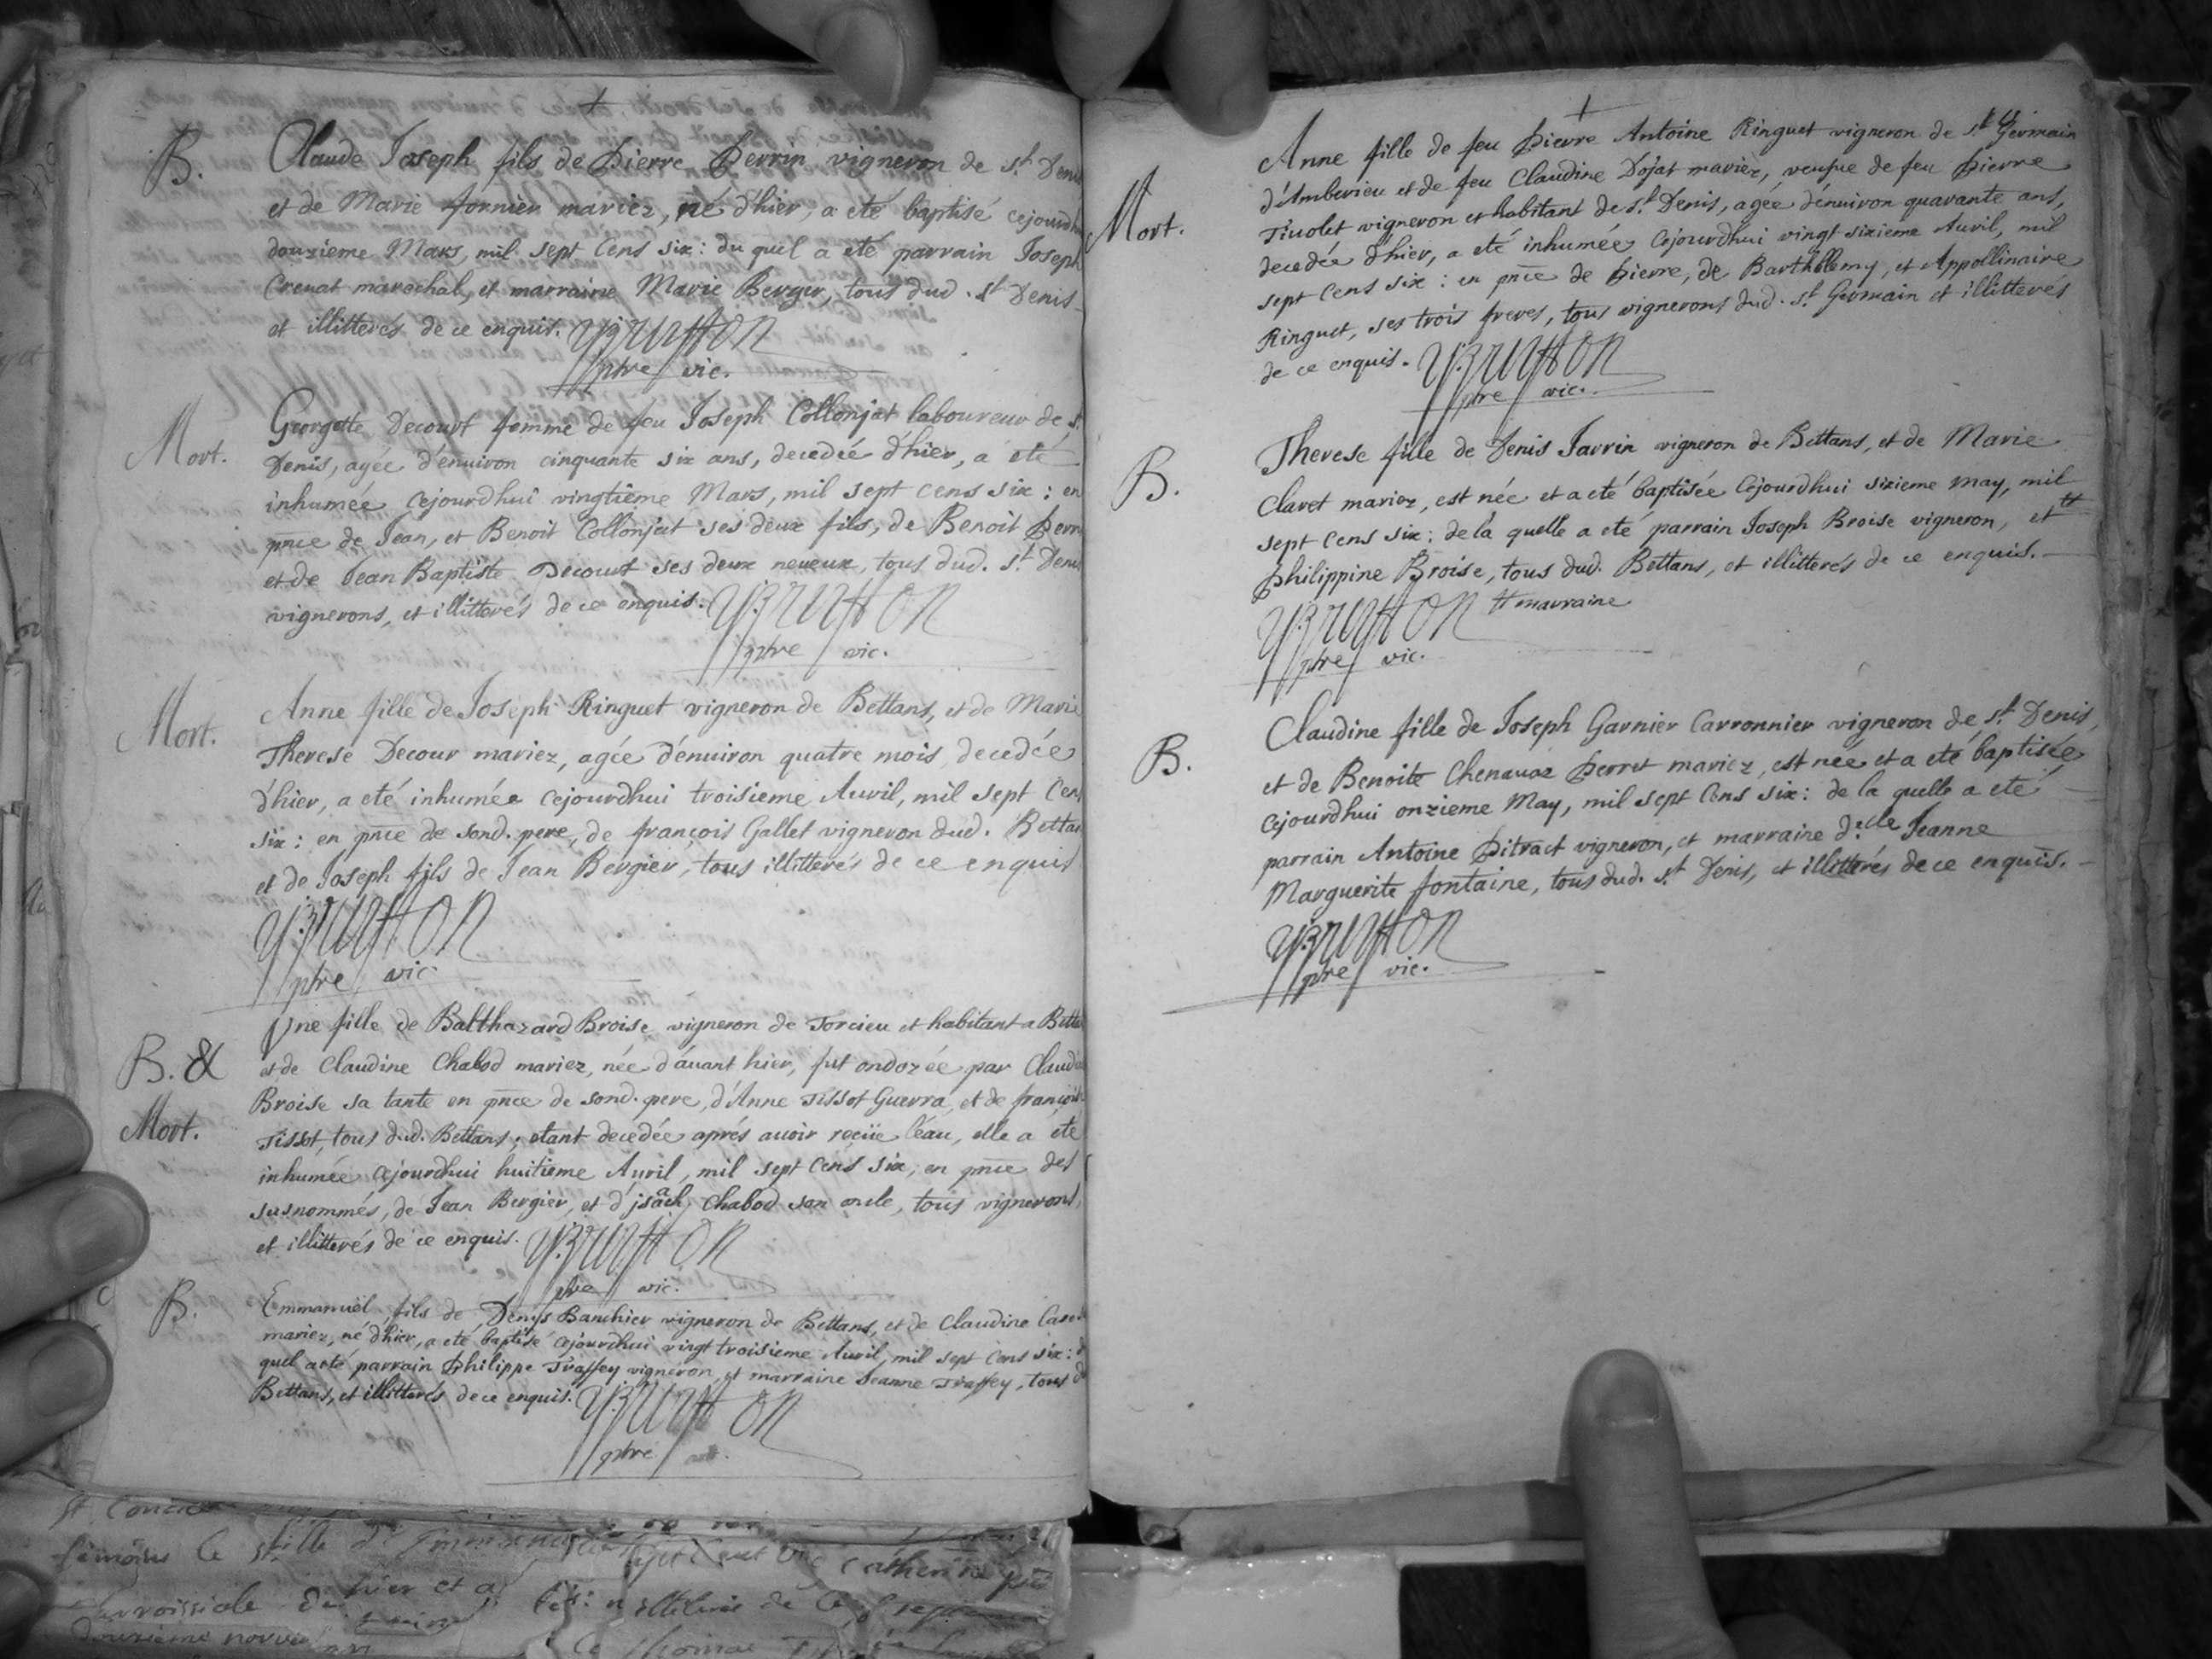 B. Claude Joseph fils de Pierre Perrin vigneron de st. Denis
et de Marie fornier mariez, né d'hier, a eté baptisé cejourdh
douzieme Mars, mil sept cens six: du quel a eté parrain Joseph
Crevat marechal, et marraine Marie Berger, tous dud. st Denis
et illitterés de ce enquis. Brutton
ptre vic.
Mort. Georgette Decourt femme de feu Joseph Collonjat laboureur de st.
Denis, agée d'enuiron cinquante six ans, decedée d'hier, a eté
inhumée cejourdhui vingtième Mars, mil sept cens six: en
pnce de Jean, et Benoit Collonjat ses deux fils, de Benoit Perri
et de Jean Baptiste Decourt ses deux neueux, tous dud. st. Denis
vignerons, et illitterés de ce enquis.
ptre vic.
Mort. Anne fille de Joseph Ringuet vigneron de Bettans, et de Marie
Therese Decour mariez, agée d'enuiron quatre mois, decedée
d'hier, a eté inhumée cejourdhui troisieme Auril, mil sept cens
six: en pnce de sond. pere, de françois Gallet vigneron dud. Bettan
et de Joseph fils de Jean Bergier, tous illitterés de ce enquis
ptre vic.
B. & Une fille de Balthazard Broise vigneron de Torcieu et habitant a Betta
et de Claudine Chabod mariez, née d'auant hier, fut ondoyée par Claudi
Broise sa tante en pnce de sond. pere, d'Anne Tissot Guerra, et de françois
Mort. Tissot, tous dud. Bettans; etant decedée aprés auoir reçüe l'eau, elle a eté
inhumée cejourdhui huitieme Auril, mil sept cens six, en pnce des
susnommés, de Jean Bergier, et d'jsaäch Chabod son oncle, tous vignerons,
et illitterés de ce enquis.
ptre vic.
B. Emmanuël fils de Denys Banchier vigneron de Bettans, et de Claudine
mariez, né d'hier, a eté baptisé cejourdhui vingt troisieme Auril, mil sept cens six: d
quel a eté parrain Philippe Traffey vigneron, et marraine Jeanne Traffey, tous d
Bettans, et illitterés de ce enquis.
ptre
Anne fille de feu Pierre Antoine Ringuet vigneron de st Germain
d'Amberieu et de feu Claudine Dojat mariez, veufue de feu Pierre
Mort. Tiuolet vigneron et habitant de st. Denis, agée d'enuiron quarante ans,
decedée d'hier, a eté inhumée cejourdhui vingt sixieme Auril, mil
sept cens six: en pnce de Pierre, de Barthélemy, et Appollinaire
Ringuet, ses trois freres, tous vignerons dud. st Germain et illitterés
de ce enquis.
ptre vic.
Therese fille de Denis Jarrin vigneron de Bettans, et de Marie
B. Clavet mariez, est née et a eté baptisée cejourdhui sixieme may, mil
sept cens six: de la quelle a eté parrain Joseph Broise vigneron, et #
Philippine Broise, tous dud. Bettans, et illitterés de ce enquis.
# marraine
ptre vic.
Claudine fille de Joseph Garnier Carronnier vigneron de st. Denis,
B. et de Benoite Chenauaz Perret mariez, est née et a eté baptisée
cejourdhui onzieme May, mil sept cens six: de la quelle a eté
parrain Antoine Pitract vigneron, et marraine d.elle Jeanne
Marguerite fontaine, tous dud. st Denis, et illitterés de ce enquis.
ptre vic.